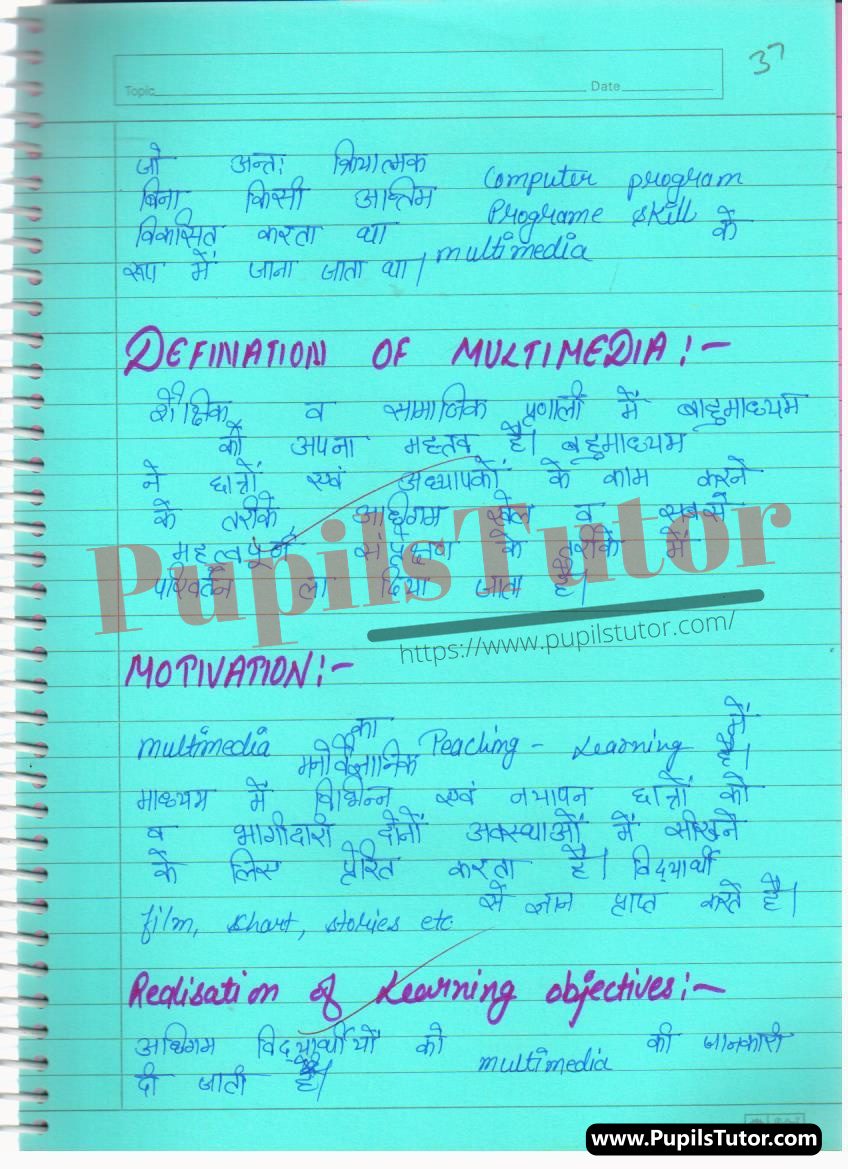 37
Topic Date
जो अन्तः क्रियात्मक computer program
बिना किसी अन्तिम Programe skill
विकसित करता था multimedia के
रूप में जाना जाता था।
DEFINATION OF MULTIMEDIA:-
शैक्षिक व सामाजिक प्रणाली में बाहुमाध्यम
को अपना महत्व है। बहुमाध्यम
ने छात्रों एवं अध्यापकों के काम करने
के तरीके अधिगम खेल व सबसे
महत्वपूर्ण संप्रेक्षण के तरीके में
परिवर्तन ला दिया जाता है।
PupilsTutor
https://www.pupilstutor.com/
MOTIVATION:-
multimedia का मनोवैज्ञानिक Peaching - Learning में है।
माध्यम में विभिन्न एवं नयापन छात्रों को
व भागीदारी दोनों अवस्थाओं में सीखने
के लिए प्रेरित करता है। विद्यार्थी
film, schart, stories etc से ज्ञान प्राप्त करते है।
Realisation of Learning objectives:-
अधिगम विद्यार्थीयों को multimedia की जानकारी
दी जाती है।
www.PupilsTutor.com